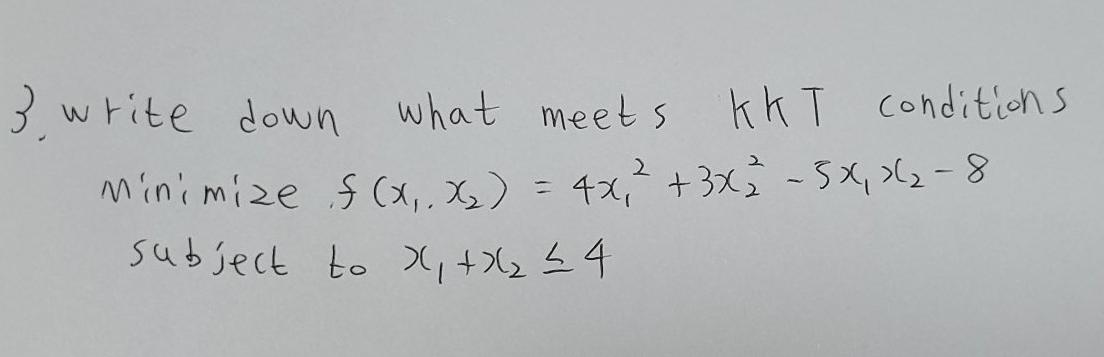 3. write down what meets KKT conditions
minimize f(x₁, x₂) = 4x₁² + 3x₂² - 5x₁x₂ - 8
subject to x₁+x₂ ≤ 4